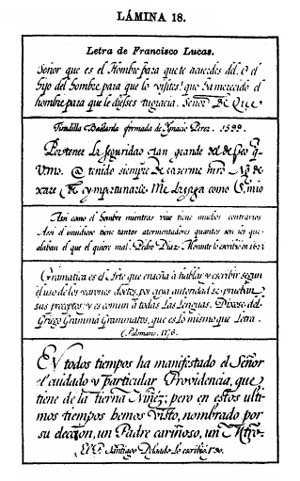 LÁMINA 18.
Letra de Francisco Lucas.
Señor que es el Hombre para que te acuerdes dél. O el
hijo del hombre para que lo visites! que ha merecido el
hombre para que le dieses tu gracia. Señor
Tiradilla Bastarda formada de Ignacio Perez. 1599.
seguridad tan grande
tenido siempre de
como
Assi como el hombre mientras vive tiene muchos contrarios
Assi el invidioso tiene tantos atormentadores quantos son los que
alaban el que el quiere mal. Pedro Diaz Morante lo escribió en 1623
Gramatica es el Arte que enseña á hablar, y escribir segun
el uso de los varones doctos, por cuya autoridad se prueban
sus preceptos y es comun á todas las Lenguas. Dixose del
Griego Gramma Grammatos, que es lo mismo que Letra.
(Palomares, 1776.
En todos tiempos ha manifestado el Señor
el cuidado y particular Providencia, que
tiene de la tierna Niñez; pero en estos ulti-
mos tiempos hemos visto, nombrado por
su decreto, un Padre cariñoso, un Mtro.
El P. Santiago Delgado lo escribió. 1790.